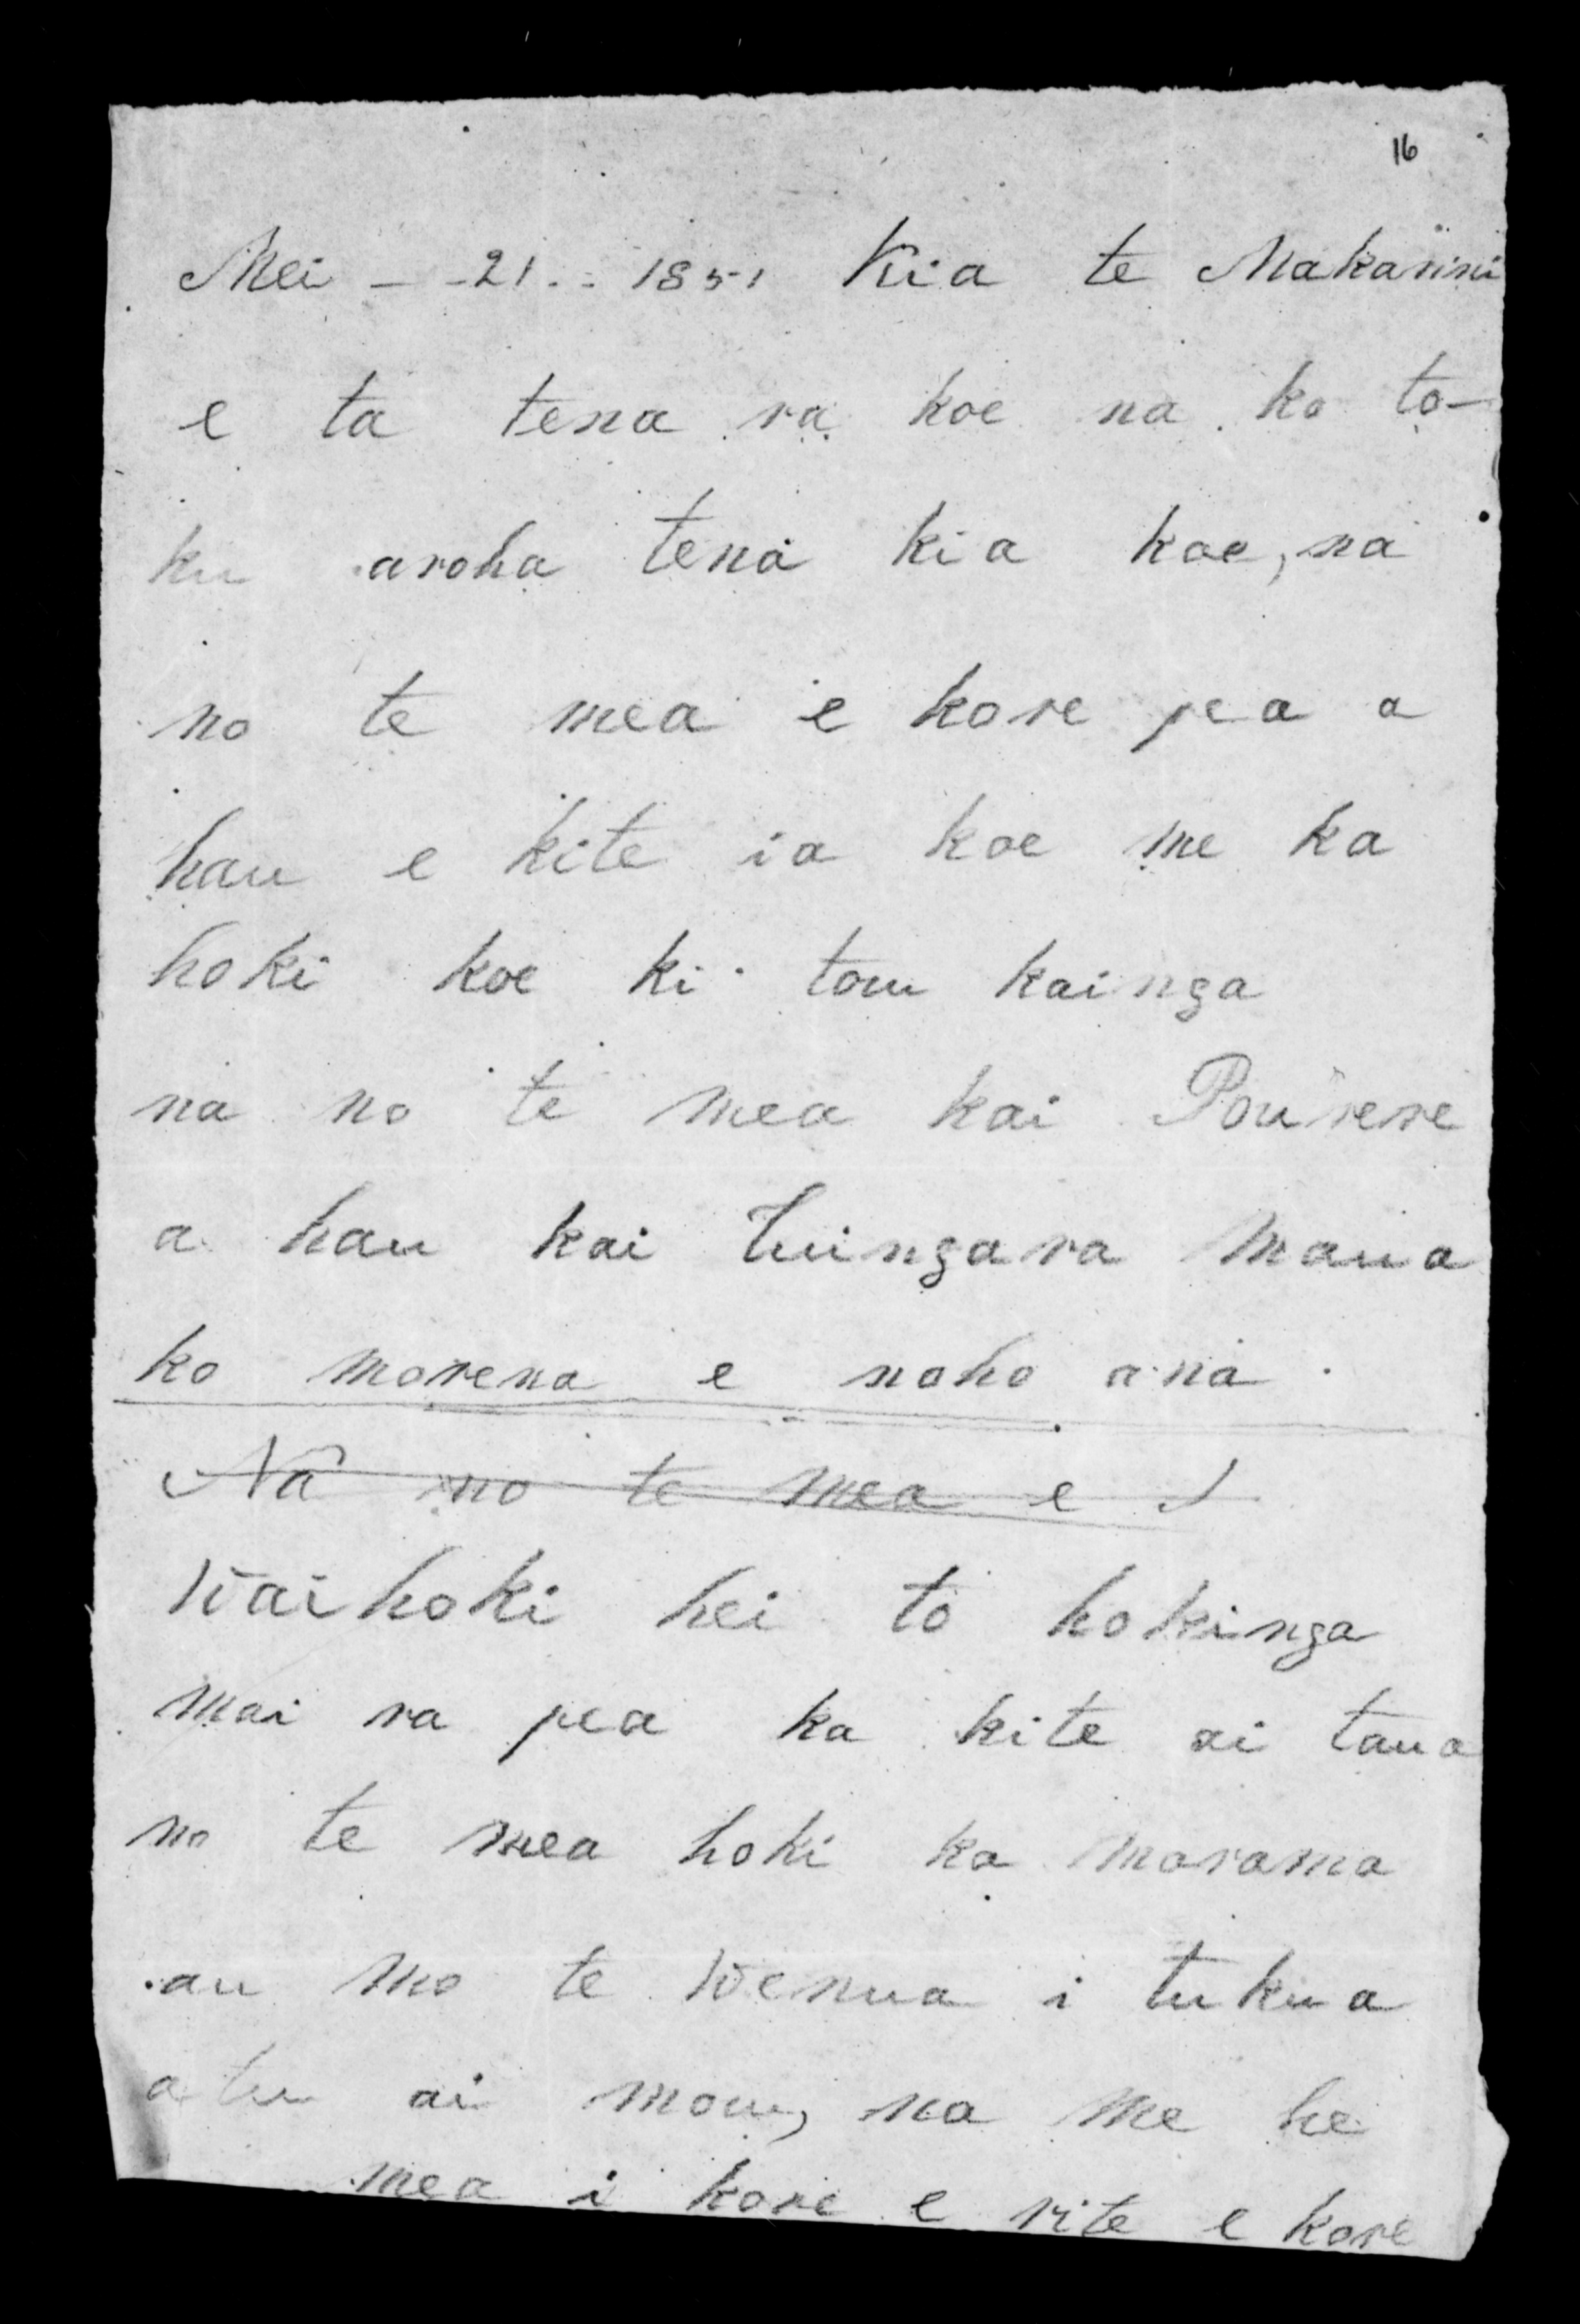 16
Mei - - 21 . - 1851 Kia te Makarini
e ta tena ra koe na ko to-
ku aroha tena kia koe, na
no te mea e kore pea a
hau e kite ia koe me ka
hoki koe ki tou kainga
na no te mea kai Pourere
a hau kai Tuingara maua
ko morena e noho ana .
Na no te mea e
Waihoki hei to hokinga
mai ra pea ka kite ai taua
no te mea hoki ka marama
au mo te Wenua i tukua
atu ai mou, na me he
mea i kore e rite e kore